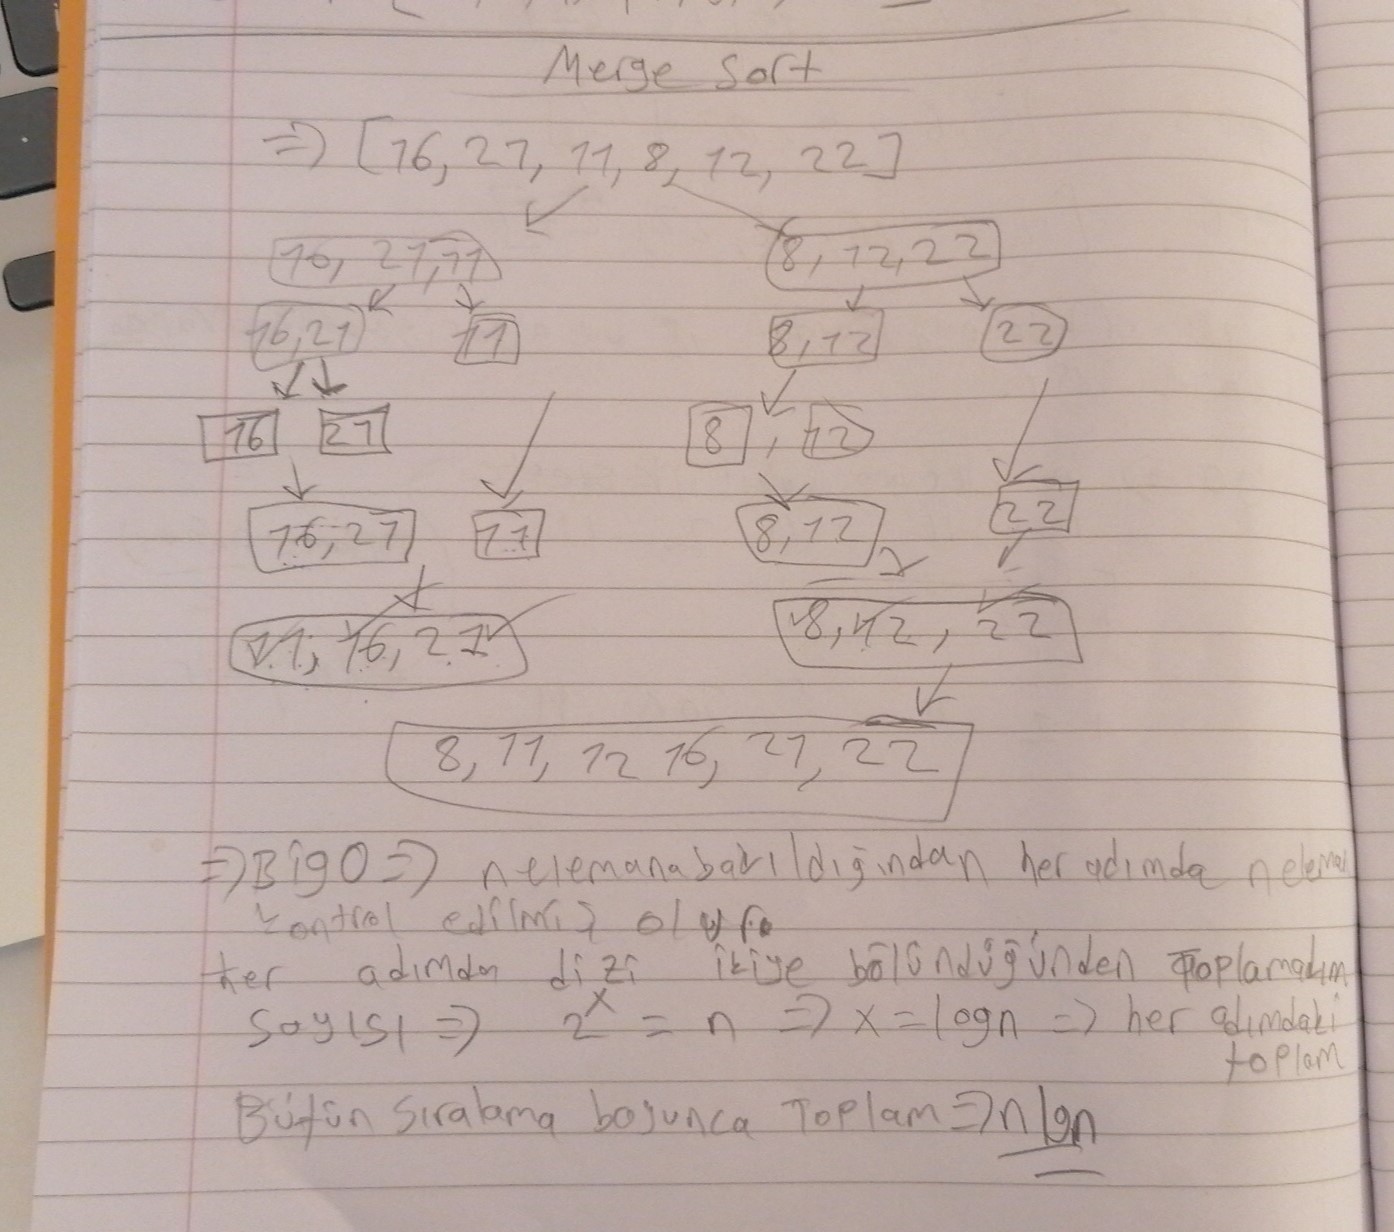 Merge Sort
=> [16, 21, 11, 8, 12, 22]
16, 21, 11 8, 12, 22
16, 21 11 8, 12 22
16 21 8 , 12
16, 21 11 8, 12 22
11, 16, 21 8, 12, 22
8, 11, 12 16, 21, 22
=> Big O => n elemana bakıldığından her adımda n elema
kontrol edilmiş olur
her adımda dizi ikiye bölündüğünden Toplam adım
sayısı => 2^x = n => x = logn => her adımdaki
toplam
Bütün sıralama boyunca Toplam => nlgn